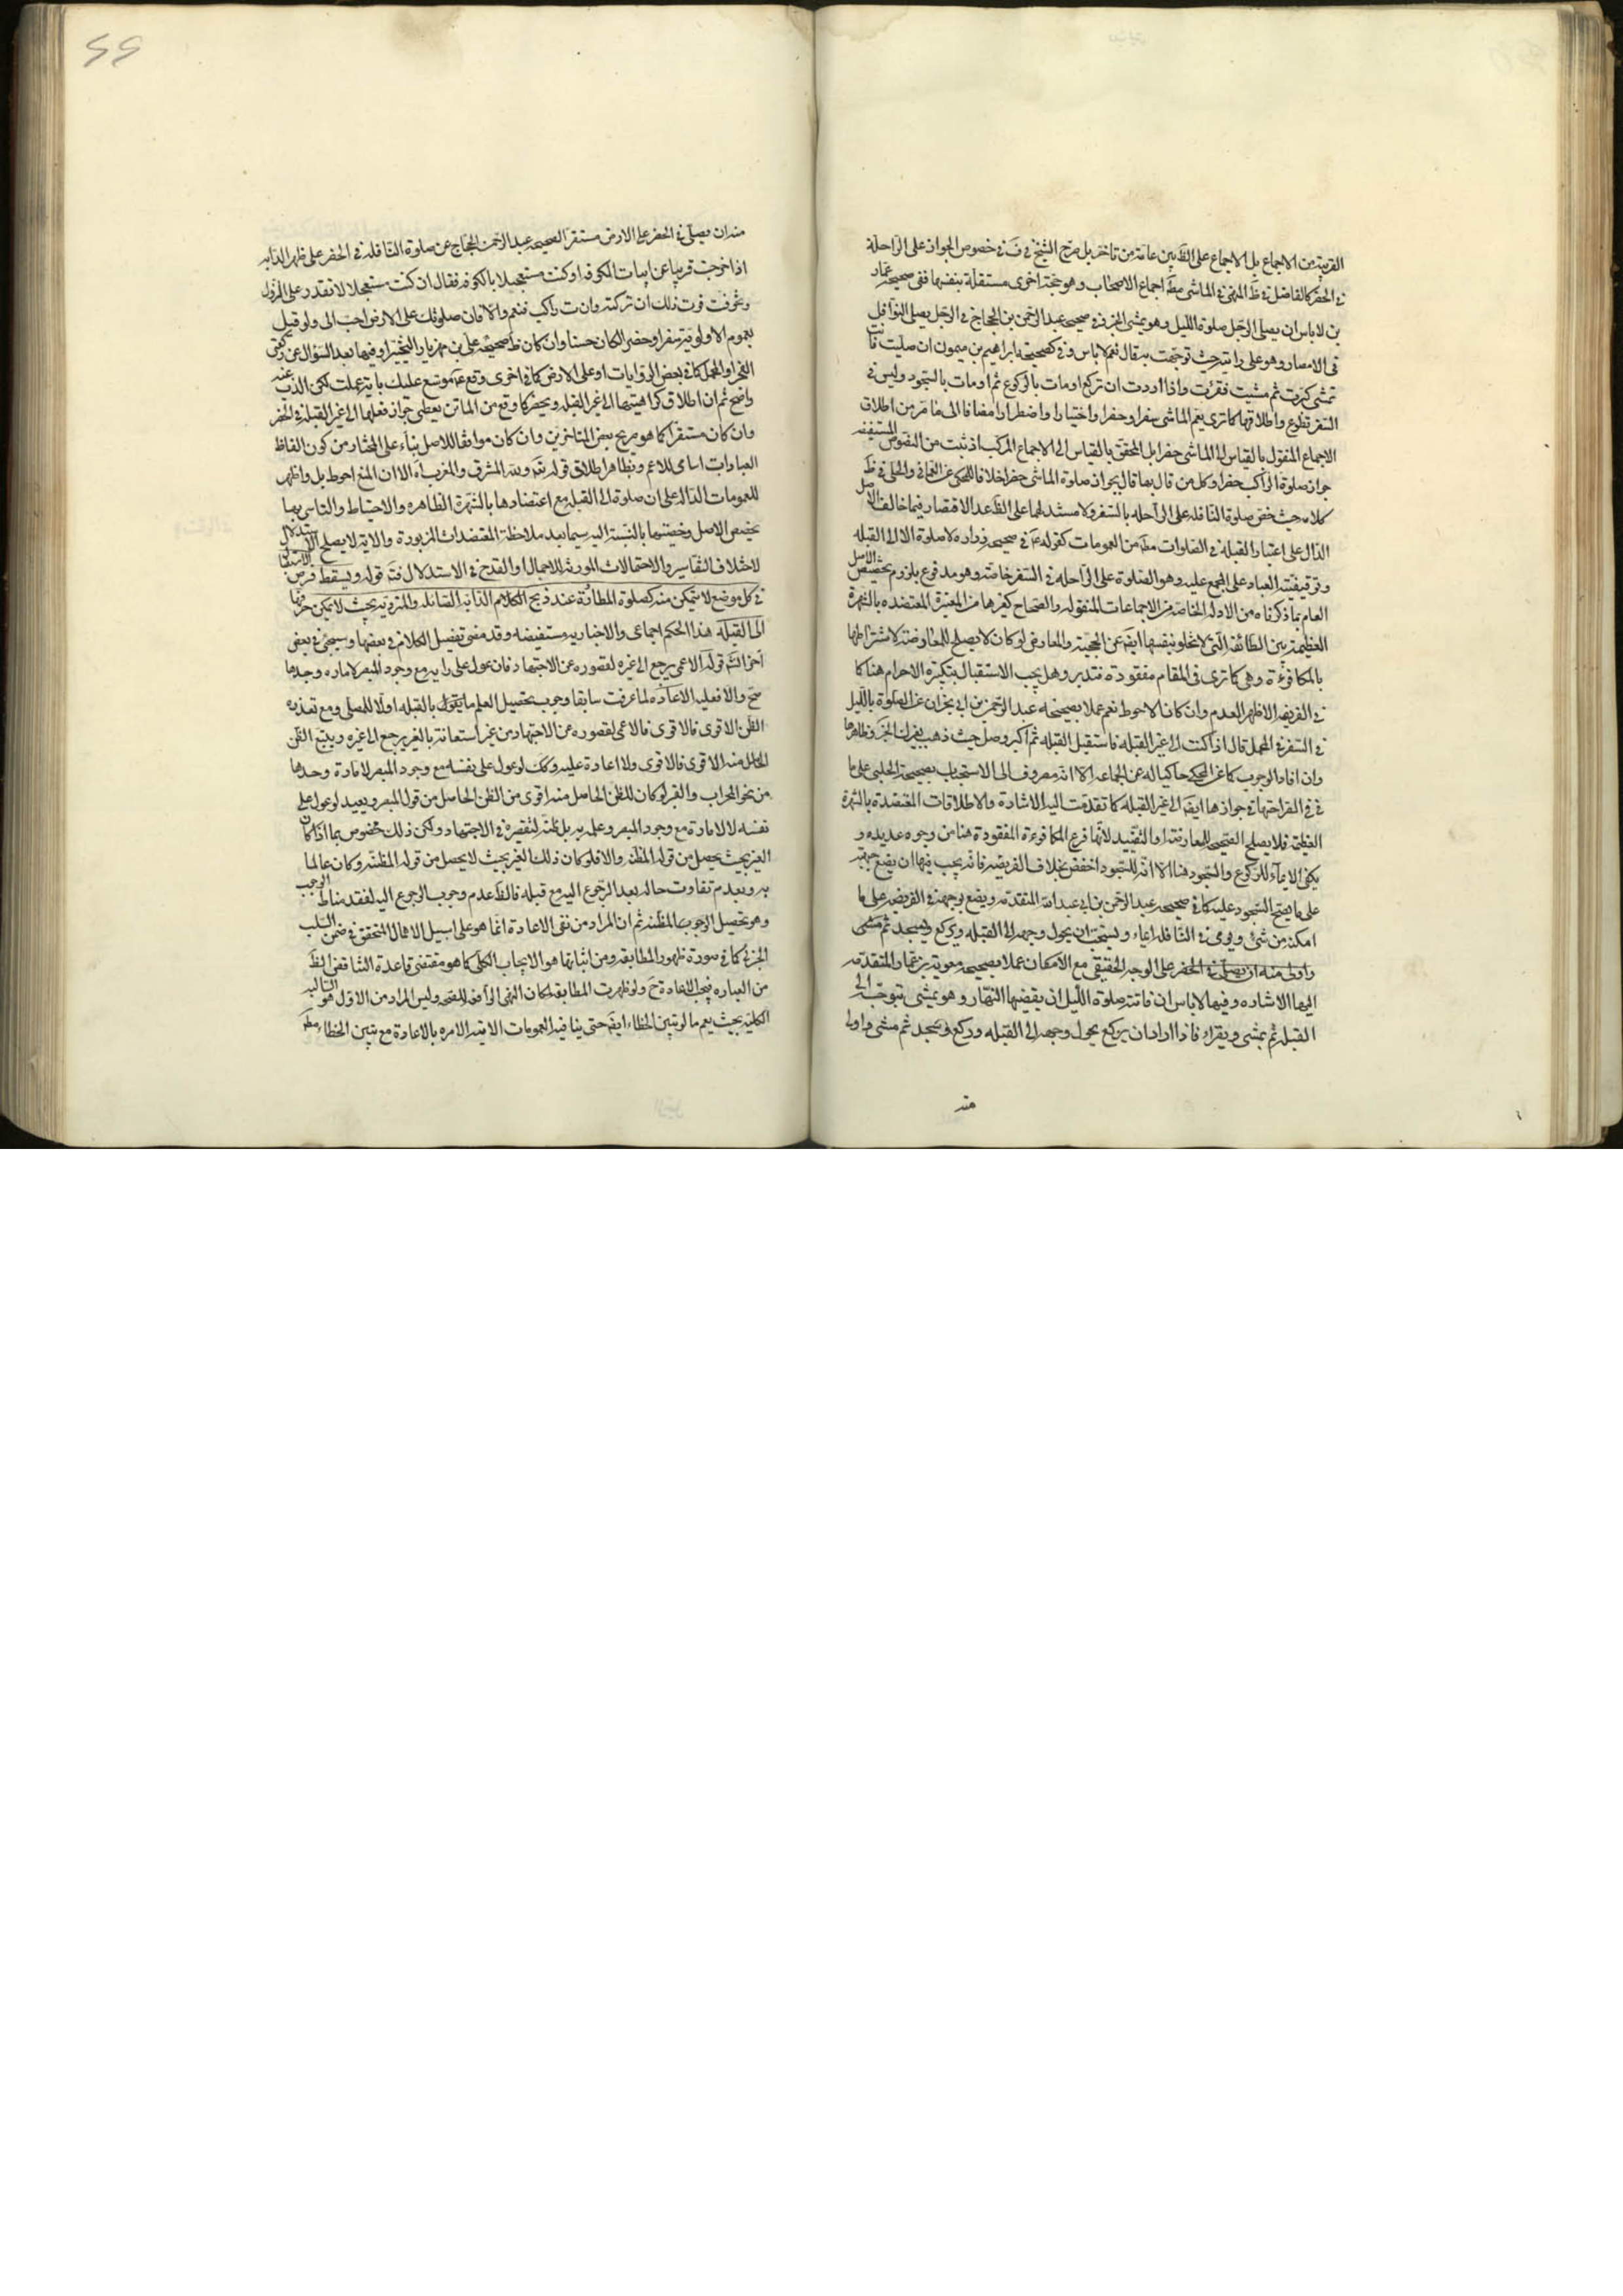 القريبة من الاجماع بل الاجماع على الظ بين عامة من تاخر بل صرح الشيخ في ف في خصوص الجواز على الراحلة
في الحضر كالفاضل في ظ المنهى في الماشي مط اجماع الاصحاب وهو حجة اخرى مستقلة بنفسها ففي صحيحة عمار
بن لا باس ان يصلى الرجل صلوة الليل وهو يمشي الخ وفي صحيحة عبد الرحمن بن الحجاج في الرجل يصلى النوافل
في الامصار وهو على دابته حيث توجهت به قال نعم لا باس وفي كصحيحة ابراهيم بن ميمون ان صليت وانت
تمشى كبرت ثم مشيت فقرئت واذا اردت ان تركع اومات بالركوع ثم اومات بالسجود وليس في
السفر تطوع واطلاقها كما ترى يعم الماشي سفرا وحضرا واختيارا واضطرارا مضافا الى ما مر من اطلاق
الاجماع المنقول بالقياس الى الماشي حضرا بل المحقق بالقياس الى الاجماع المركب اذ ثبت من النصوص المستفيضة
جواز صلوة الراكب حضرا وكل من قال بها قال بجواز صلوة الماشي حضرا خلافا للمحكى عن العماني والحلي في ظ
كلامه حيث خص صلوة النافلة على الراحلة بالسفر ولا مستند لهما على الظ عدا الاقتصار فيما خالف الاصل
الدال على اعتبار القبلة في الصلوات مط من العمومات كقوله ع في صحيحة زرارة لا صلوة الا الى القبلة
وتوقيفية العبادة على المجمع عليه وهو الصلوة على الراحلة في السفر خاصة وهو مدفوع بلزوم تخصيص الاصل
العام بما ذكرناه من الادلة الخاصة من الاجماعات المنقولة والصحاح كغيرها من المعتبرة المعتضدة بالشهرة
العظيمة بين الطائفة التي لا تخلو بنفسها ايض عن الحجية والمعارض لو كان لا يصلح للمعاوضة لاشتراطها
بالمكافوءة وهي كما ترى في المقام مفقودة فتدبر وهل يجب الاستقبال بتكبيرة الاحرام هنا كما
في الفريضة الاظهر العدم وان كان الاحوط نعم عملا بصحيحة عبد الرحمن بن ابي نجران عن الصلوة بالليل
في السفر في المحمل قال اذا كنت الى غير القبلة فاستقبل القبلة ثم اكبر وصل حيث ذهب بعيرك الخبر وظاهرها
وان افاد الوجوب كما عن الحلي حاكيا له عن الجماعة الا انه مصروف الى الاستحباب بصحيحة الحلبي على ما
في صراحتها في جوازها ايض الى غير القبلة كما تقدمت اليه الاشارة والاطلاقات المعتضدة بالشهرة
العظيمة فلا يصلح الصحيحة للمعارضة او التقييد لانها فرع المكافوءة المفقودة هنا من وجوه عديدة و
يكفى الايماء للركوع والسجود هنا الا انه للسجود اخفض بخلاف الفريضة فانه يجب فيها ان يضع جبهته
على ما يصح السجود عليه كما في صحيحة عبد الرحمن بن ابي عبد الله المتقدمة ويضع بوجهه في الفريضة على ما
امكنه من شئ ويومى في النافلة ايماء ويستحب ان يحول وجهه الى القبلة ويركع ويسجد ثم مشى
واولى منه ان يصلى في الحضر على الوجه الحقيقي مع الامكان عملا بصحيحة معوية بن عمار المتقدمة
اليها الاشارة وفيها لا باس ان فاتته صلوة الليل ان يقضيها النهار وهو يمشى يتوجه الى
القبلة ثم يمشى ويقرا فاذا اراد ان يركع يحول وجهه الى القبلة وركع وسجد ثم مشى واولى
منه
٤٤
منه ان يصلى في الحضر على الارض مستقرا لصحيحة عبد الرحمن الحجاج عن صلوة النافلة في الحضر على ظهر الدابة
اذا خرجت قريبا عن ابيات الكوفة او كنت مستعجلا بالكوفة فقال ان كنت مستعجلا لا تقدر على النزول
وتخوفت فوت ذلك ان تركته وانت راكب فنعم والا فان صلوتك على الارض احب الى ولو قيل
بعموم الاولوية سفرا وحضرا لكان حسنا وان كان ظ صحيحة علي بن مهزيار التخيير او فيها بعد السؤال عن ركعتي
الفجر او المحمل كما في بعض الروايات او على الارض كما في اخرى وقع ع موسع عليك باية عملت لكن الذب عنه
واضح ثم ان اطلاق كراهيتها الى غير القبلة ويحضر كما وقع من الماتن يعطى جواز فعلها الى غير القبلة في الحضر
وان كان مستقرا كما هو صريح بعض المتاخرين وان كان موافقا للاصل بناء على المختار من كون الفاظ
العبادات اسامى للاعم وبظاهر اطلاق قوله تع ولله المشرق والمغرب اه الا ان المنع احوط بل واظهر
للعمومات الدالة على ان صلوة الى القبلة مع اعتضادها بالشهرة الظاهرة والاحتياط والتاسى بها
يخصص الاصل وخصيتها بالنسبة اليه سيما بعد ملاحظة المعتضدات المزبورة والاية لا يصلح الاستدلال
لاختلاف التفاسير والاحتمالات المورثة للاجمال او القدح في الاستدلال فته قوله ويسقط فرض الاستقبال
في كل موضع لا يتمكن منه كصلوة المطاردة عند ذبح الكلام الدابة الصائلة والمتردية بحيث لا يمكن صرفها
الى القبلة هذا الحكم اجماعى والاخبار به مستفيضة وقد مضى تفصيل الكلام في بعضها وسيجئ في بعض
اخر انش قوله الاعمى يرجع الى غيره لقصوره عن الاجتهاد فان عول على رايه مع وجود المبصر لامارة وجدها
صح والا فعليه الاعادة لما عرفت سابقا وجوب تحصيل العلم بالقبلة اولا للمصلى ومع تعذره
الظن الاقوى فالاقوى فالاعمى لقصوره عن الاجتهاد من غير استعانة بالغير يرجع الى غيره ويتبع الظن
الحاصل منه الاقوى فالاقوى ولا اعادة عليه وكك لو عول على نفسه مع وجود المبصر لامارة وجدها
من نحو المحراب والقبر لو كان للظن الحاصل منه اقوى من الظن الحاصل من قول المبصر ويعيد لو عول على
نفسه لا لامارة مع وجود المبصر وعلمه به بل ظنه لتقصيره في الاجتهاد ولكن ذلك مخصوص بما اذا كان
الغير بحيث يحصل من قوله المظنه والا فلو كان ذلك الغير بحيث لا يحصل من قوله المظنه وكان عالما
به وبعدم تفاوت حاله بعد الرجوع اليه مع قبله فالظ عدم وجوب الرجوع اليه لفقد مناط الوجوب
وهو تحصيل الوجوب المظنه ثم ان المراد من نفى الاعادة انما هو على سبيل الاهمال المتحقق في ضمن السلب
الجزئي كما في صورة ظهور المطابقة ومن اثباتها هو الايجاب الكلي كما هو مقتضى قاعدة التناقض الظ
من العبارة فيجب الاعادة ح ولو ظهرت المطابقة لمكان النهى الرافعة للصحة وليس المراد من الاول هو السالبة
الكلية بحيث يعم ما لو تبين الخطاء ايض حتى ينافيه العمومات الاتية الامره بالاعادة مع تبين الخطاء مط